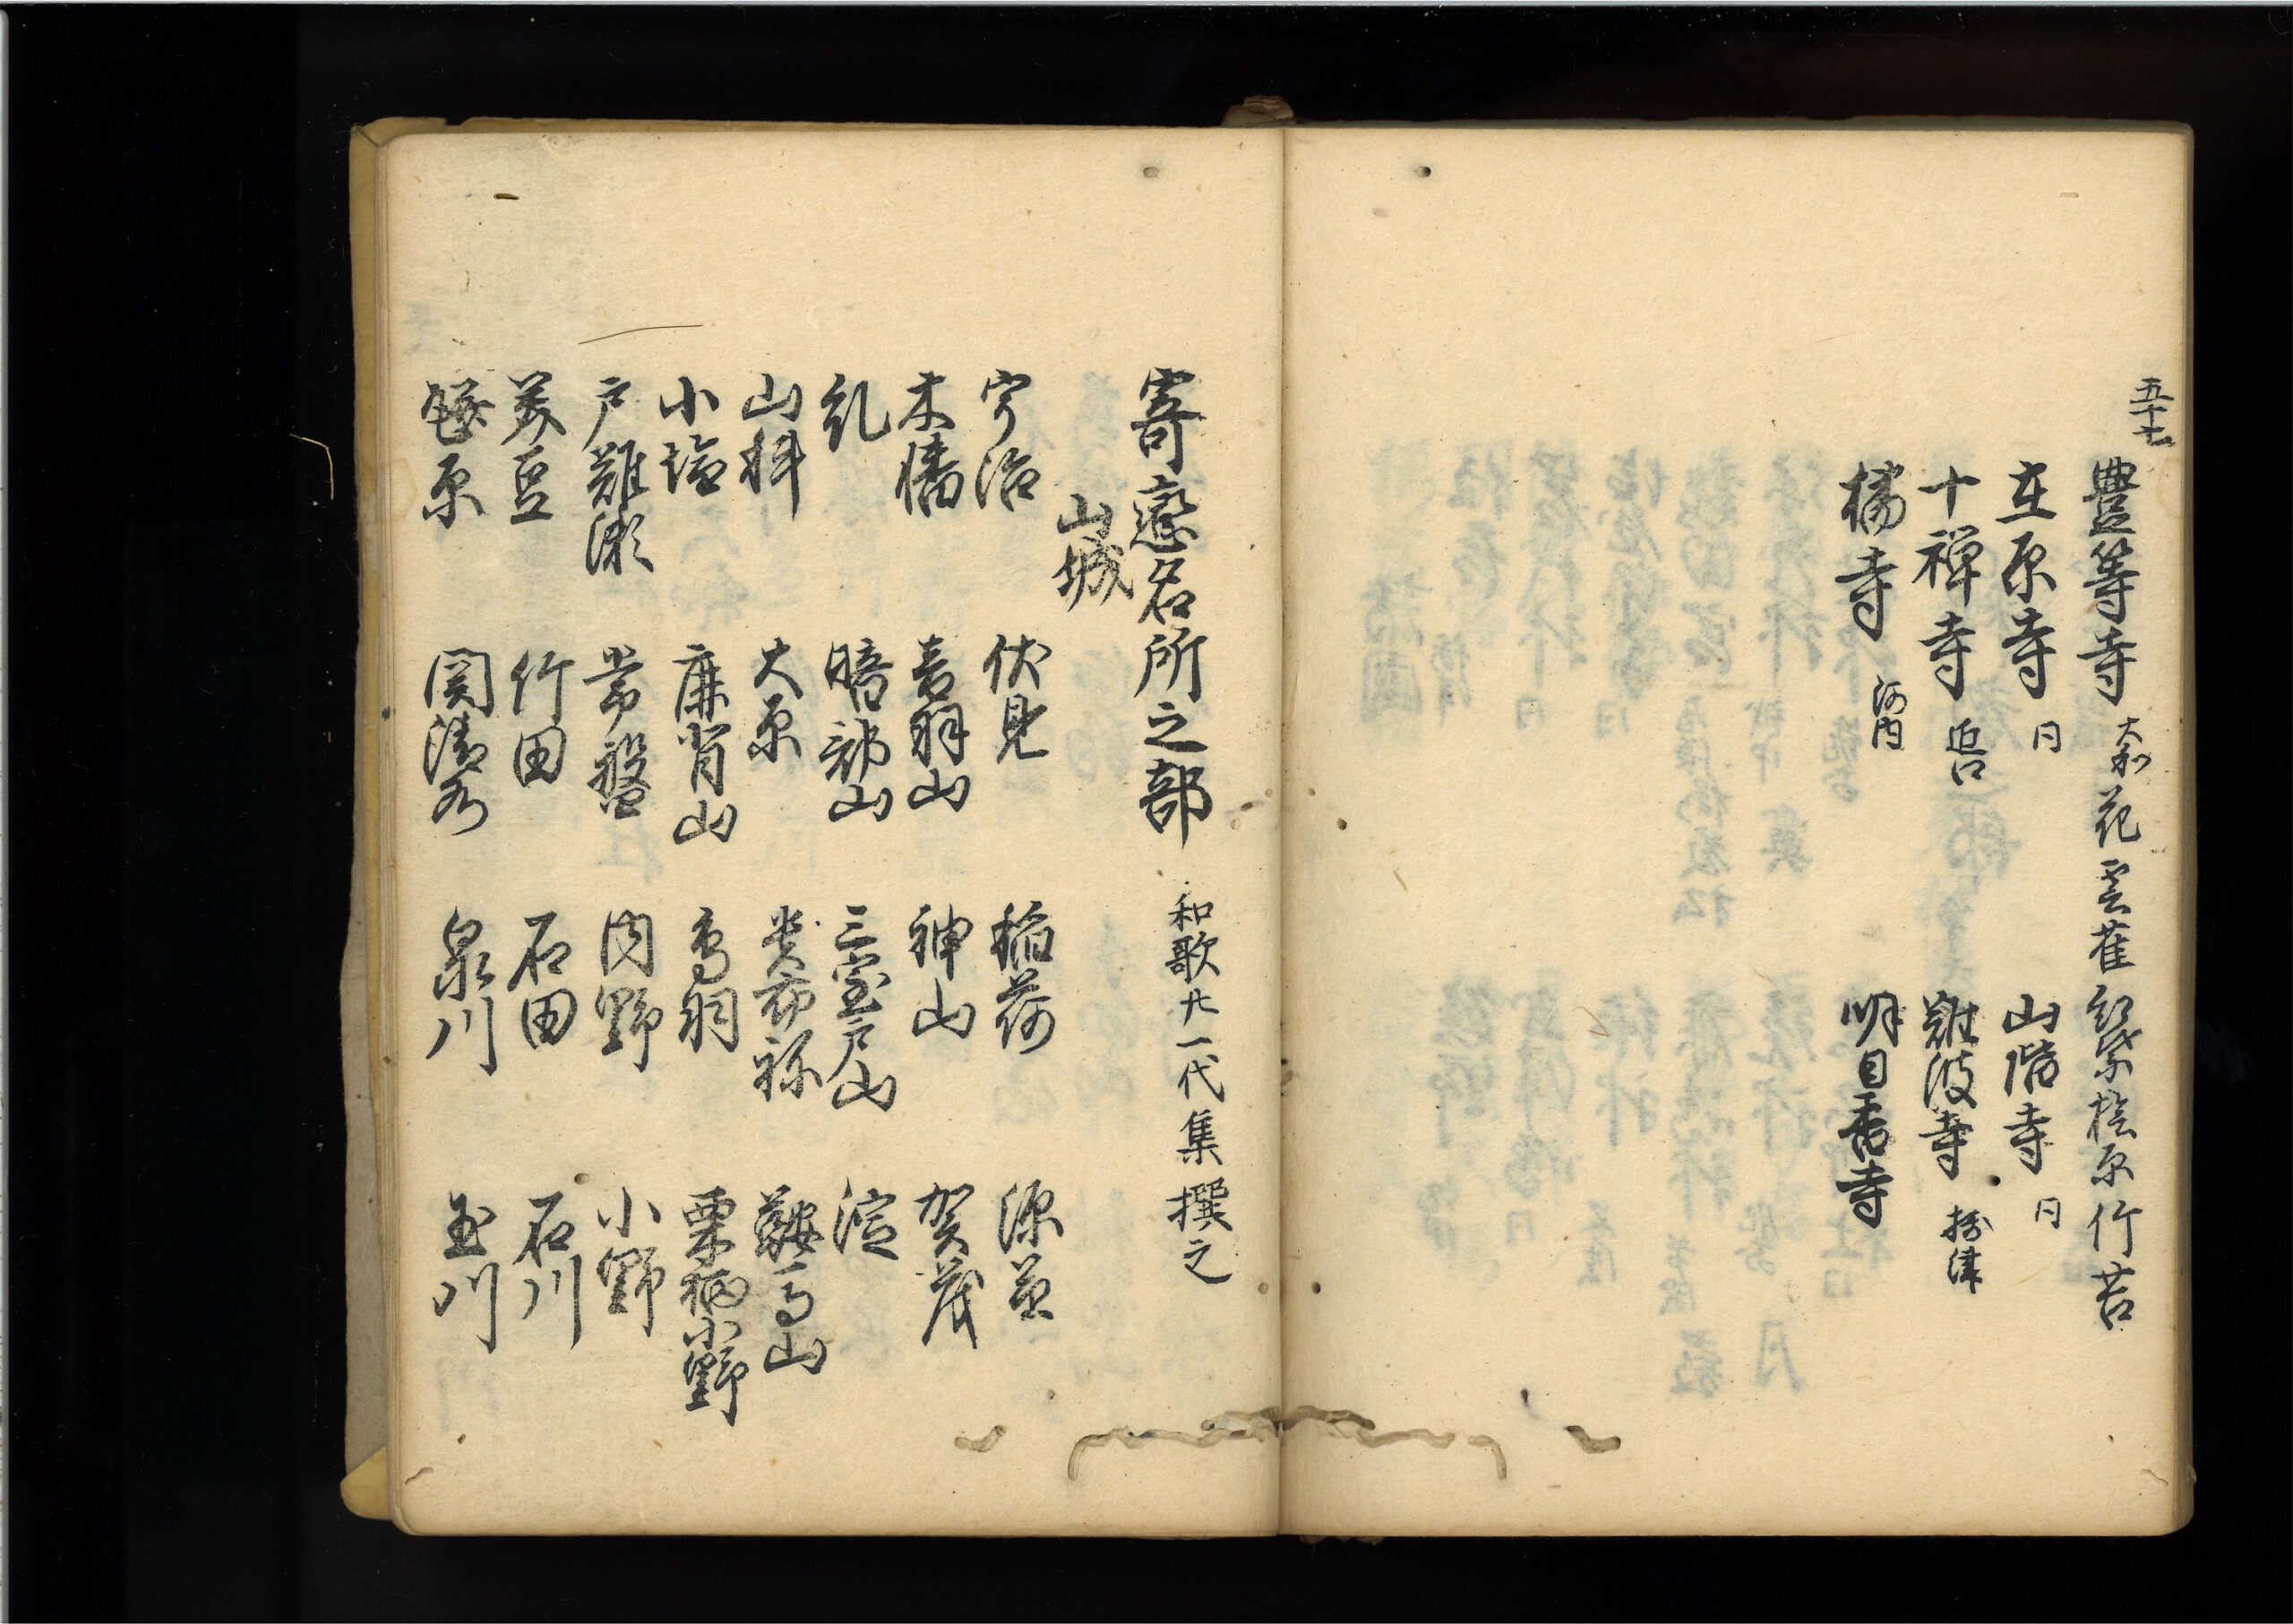 五十七
豊等寺 大和 花 雲雀 紅葉 檜原 竹 苔
在原寺 同 山階寺 同
十禅寺 近江 難波寺 摂津
橘寺 河内 明日香寺
寄戀名所之部 和歌廿一代集撰之
山城
宇治 伏見 稲荷 深草
木幡 音羽山 神山 賀茂
糺 暗部山 三室戸山 淀
山科 大原 貴布祢 鞍馬山
小塩 廉背山 鳥羽 栗栖小野
戸難瀬 常盤 内野 小野
美豆 竹田 石田 石川
瓶原 関清水 泉川 玉川